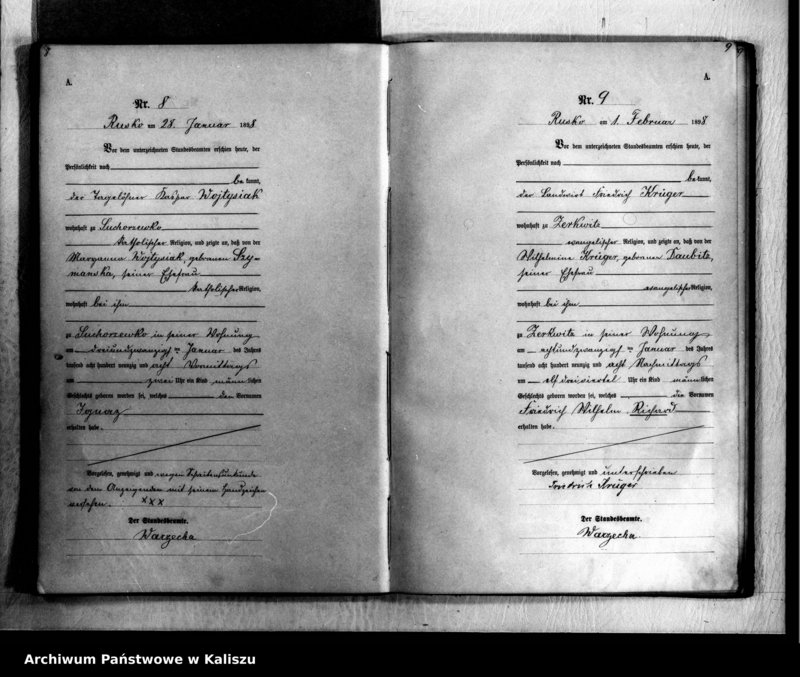 A.
Nr. 8
Rusko am 28. Januar 1898
Vor dem unterzeichneten Standesbeamten erschien heute, der
Persönlichkeit nach
bekannt,
der Tagelöhner Kaspar Wojtysiak
wohnhaft zu Suchorzewko
katholischer Religion, und zeigte an, daß von der
Maryanna Wojtysiak, geborenen Szy-
manska, seiner Ehefrau
katholischer Religion,
wohnhaft bei ihm
zu Suchorzewko in seiner Wohnung
am dreiundzwanzigsten Januar des Jahres
tausend acht hundert neunzig und acht Vormittags
um zwei Uhr ein Kind männlichen
Geschlechts geboren worden sei, welches den Vornamen
Ignaz
erhalten habe.
Vorgelesen, genehmigt und wegen Schreibensunkunde
von dem Anzeigenden mit seinem Handzeichen
versehen. xxx
Der Standesbeamte.
Warzecha
9
A.
Nr. 9
Rusko am 1. Februar 1898
Vor dem unterzeichneten Standesbeamten erschien heute, der
Persönlichkeit nach
bekannt,
der Landwirt Friedrich Krüger
wohnhaft zu Zerkwitz
evangelischer Religion, und zeigte an, daß von der
Wilhelmine Krüger, geborener Daubitz,
seiner Ehefrau
evangelischer Religion,
wohnhaft bei ihm
zu Zerkwitz in seiner Wohnung
am achtundzwanzigsten Januar des Jahres
tausend acht hundert neunzig und acht Nachmittags
um elf dreiviertel Uhr ein Kind männlichen
Geschlechts geboren worden sei, welches die Vornamen
Friedrich Wilhelm Richard
erhalten habe.
Vorgelesen, genehmigt und unterschrieben
Friedrich Krüger
Der Standesbeamte.
Warzecha
Archiwum Państwowe w Kaliszu